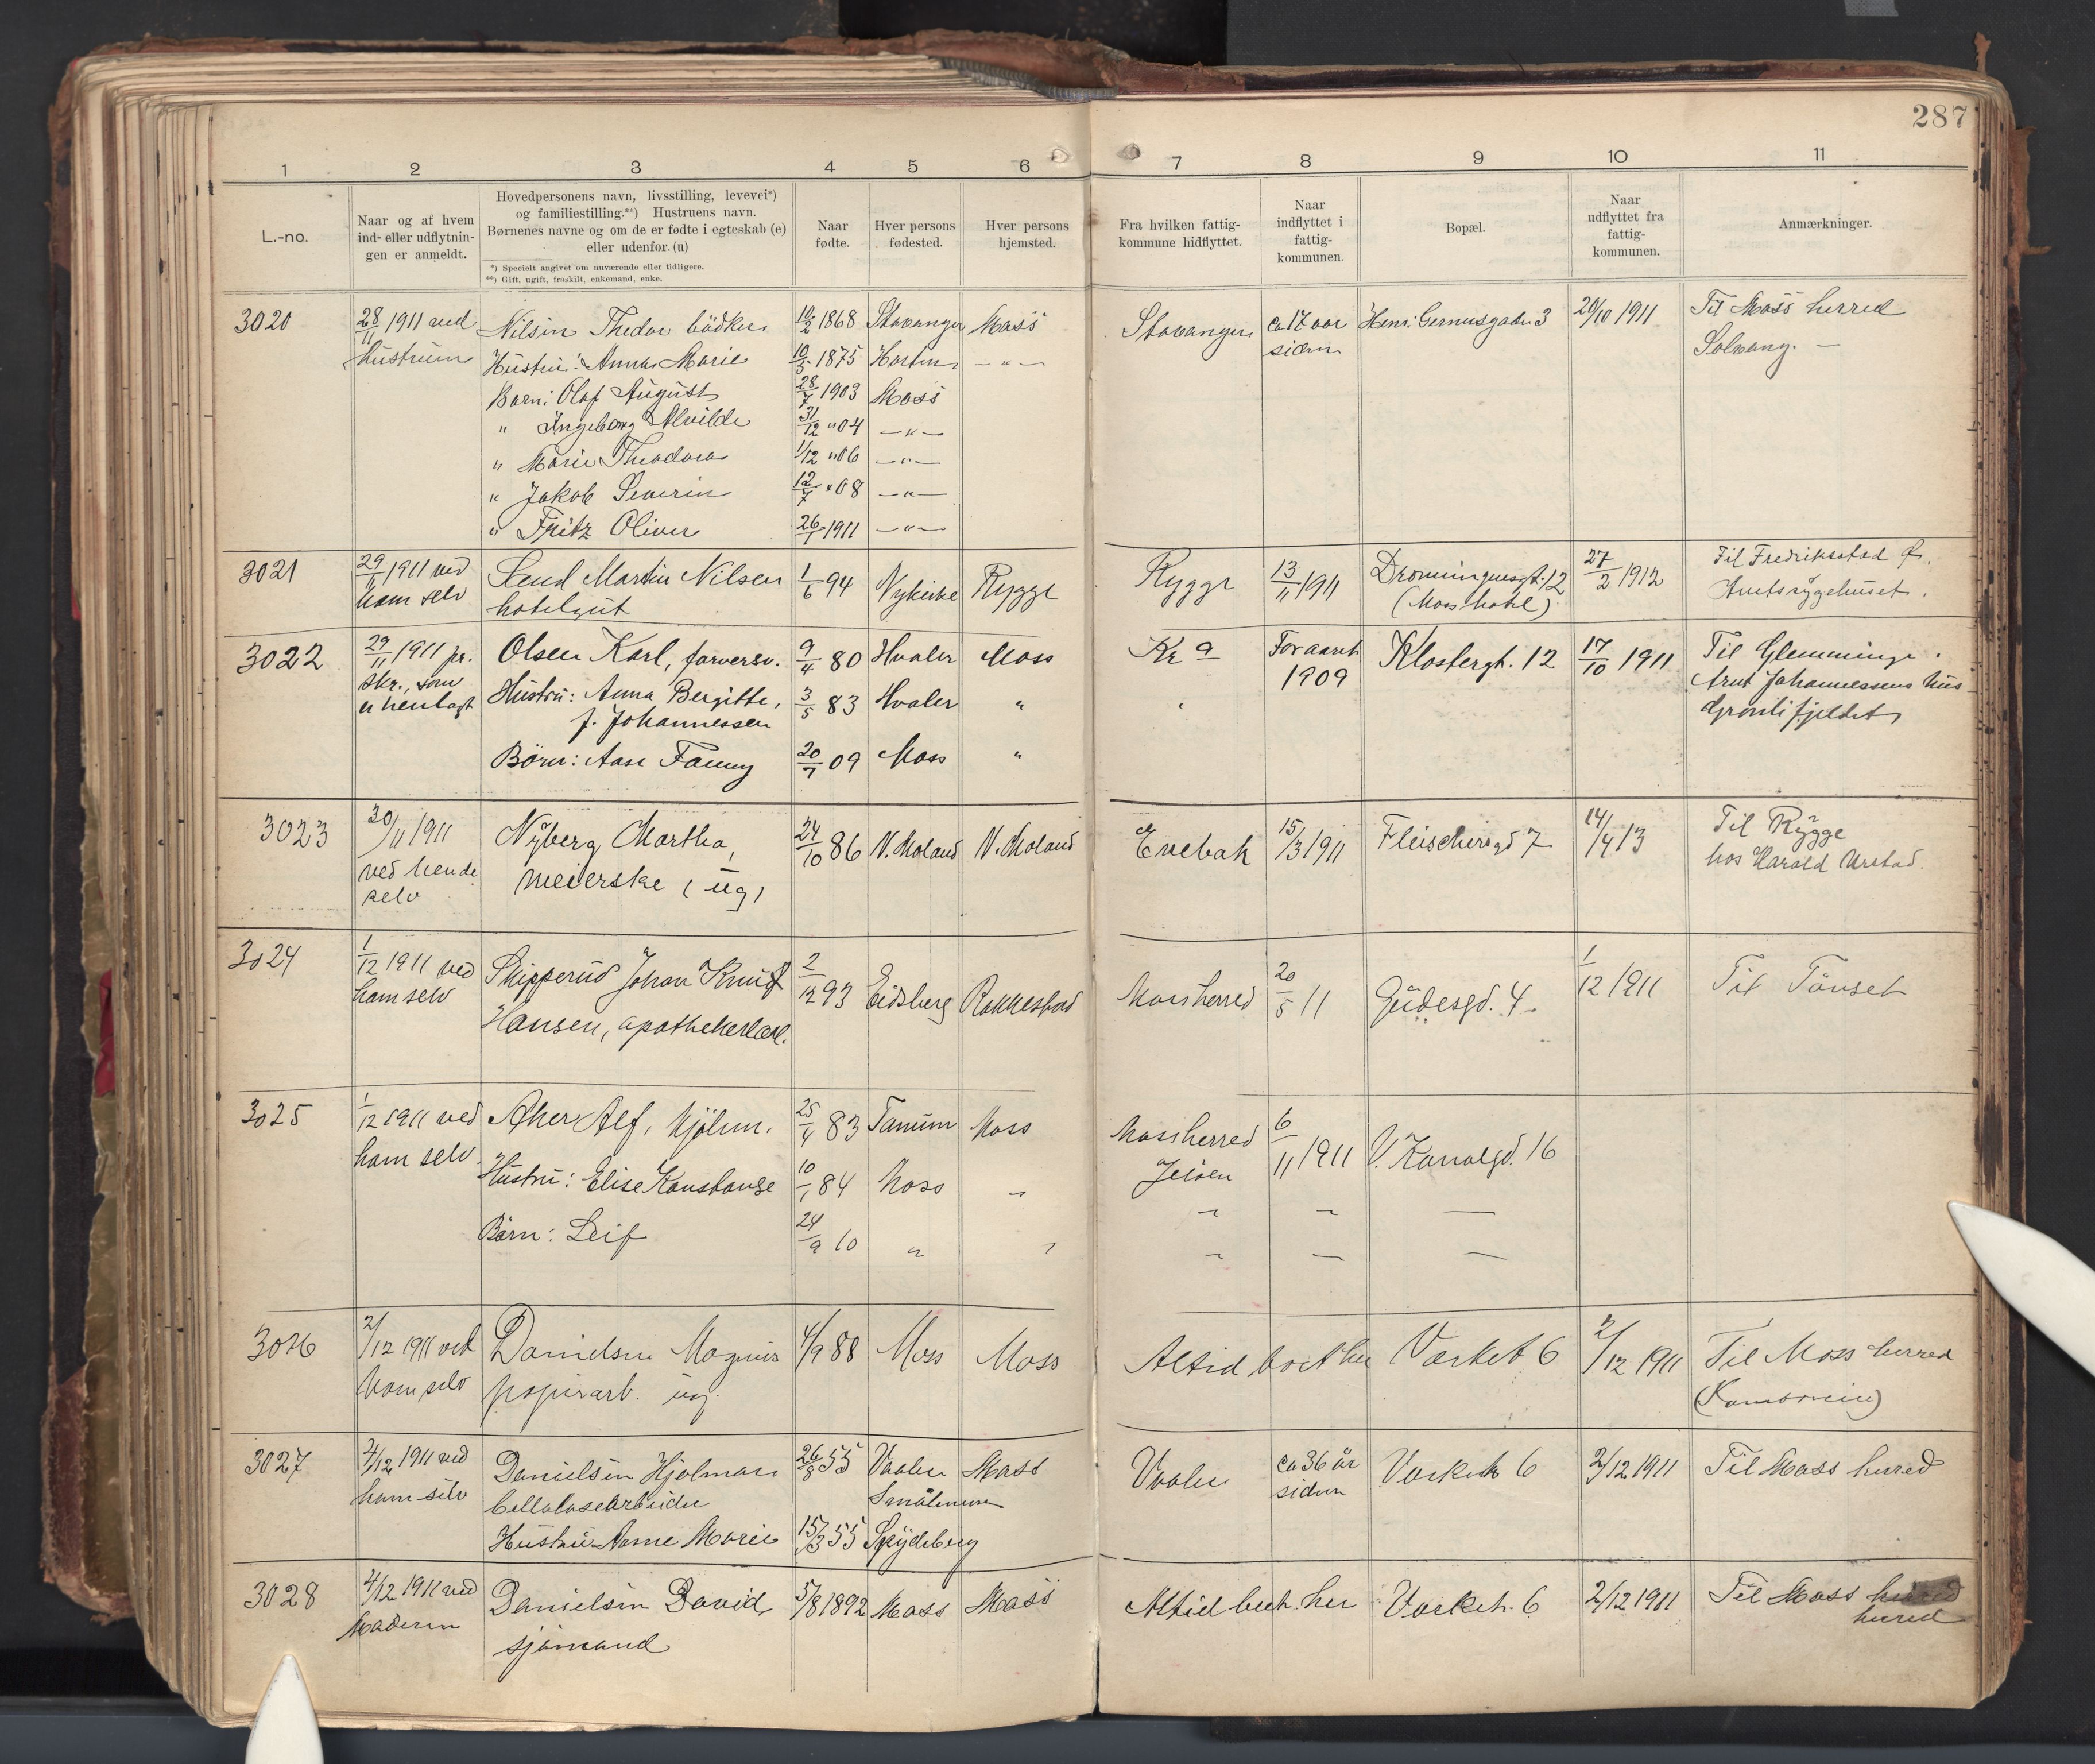 287
1 2 3 4 5 6 7 8 9 10 11
L.-no.
Naar og af hvem
ind- eller udflytnin-
gen er anmeldt.
Hovedpersonens navn, livsstilling, levevei*)
og familiestilling.**) Hustruens navn.
Børnenes navne og om de er fødte i egteskab (e)
eller udenfor. (u)
*) Specielt angivet om nuværende eller tidligere.
**) Gift, ugift, fraskilt, enkemand, enke.
Naar
fødte.
Hver persons
fødested.
Hver persons
hjemsted.
Fra hvilken fattig-
kommune hidflyttet.
Naar
indflyttet i
fattig-
kommunen.
Bopæl.
Naar
udflyttet fra
fattig-
kommunen.
Anmærkninger.
3020 28/11 1911 ved Nilsen Thedor bödker 10/2 1868 Stavanger Moss Stavanger ca 17 aar Henr. Gernersgade 3 20/10 1911 Til Moss herred
hustruen Hustru: Anna Marie 10/5 1875 Horten — " — siden Solvang. —
Barn: Olaf August 28/7 1903 Moss
" Ingeborg Alvilde 31/12 "04 — " —
" Marie Theodora 1/12 "06 — " —
" Jakob Severin 12/7 "08 — " —
" Fritz Oliver 26/7 1911 — " —
3021 29/11 1911 ved Sand Martin Nilsen 1/6 94 Nykirke Rygge Rygge 13/11 1911 Dronningensgt. 12 27/2 1912 Til Fredrikstad
ham selv hotelgut (Moss hotel) Amtssygehuset.
3022 29/11 1911 pr. Olsen Karl, farversv. 9/4 80 Hvaler Moss Kr a Foraaret Klostergt. 12 17/10 1911 Til Glemminge
skr., som Hustru: Anna Bergitte, 3/5 83 Hvaler " " 1909 Arnt Johannessens hus
er henlagt f. Johannessen Grønlifjeldet
Börn: Aase Fanny 20/7 09 Moss "
3023 30/11 1911 Nyberg Martha, 24/10 86 V. Moland V. Moland Enebak 15/3 1911 Fleischersgd 7 14/4 13 Til Rygge
ved hende meierske (ug) hos Harald Urstad.
selv
3024 1/12 1911 ved Skipperud Johan Knut 2/12 93 Eidsberg Rakkestad Moss herred 20/5 11 Gudesgd. 4. 1/12 1911 Til Tönset
ham selv Hansen, apothekerlærl.
3025 1/12 1911 ved Aker Alf, Mjölnr. 25/4 83 Tanum Moss Moss herred 6/11 1911 V. Kanalgd. 16
ham selv. Hustru: Elise Konstanse 10/1 84 Moss " Jelöen
Börn: Leif 24/9 10 " "
3026 2/12 1911 ved Danielsen Magnus 4/9 88 Moss Moss Altid boet her Værket 6 2/12 1911 Til Moss herred
ham selv papirarb. ug.
3027 4/12 1911 ved Danielsen Hjalmar 26/8 55 Vaaler Moss Vaaler ca 36 år Værket 6 2/12 1911 Til Moss herred
ham selv Cellulosearbeider Smålenene siden
Hustru Anne Marie 15/3 55 Spydeberg
3028 4/12 1911 ved Danielsen David 5/8 1892 Moss Moss Altid boet her Værket. 6 2/12 1911 Til Moss herred
Moderen sjömand herred